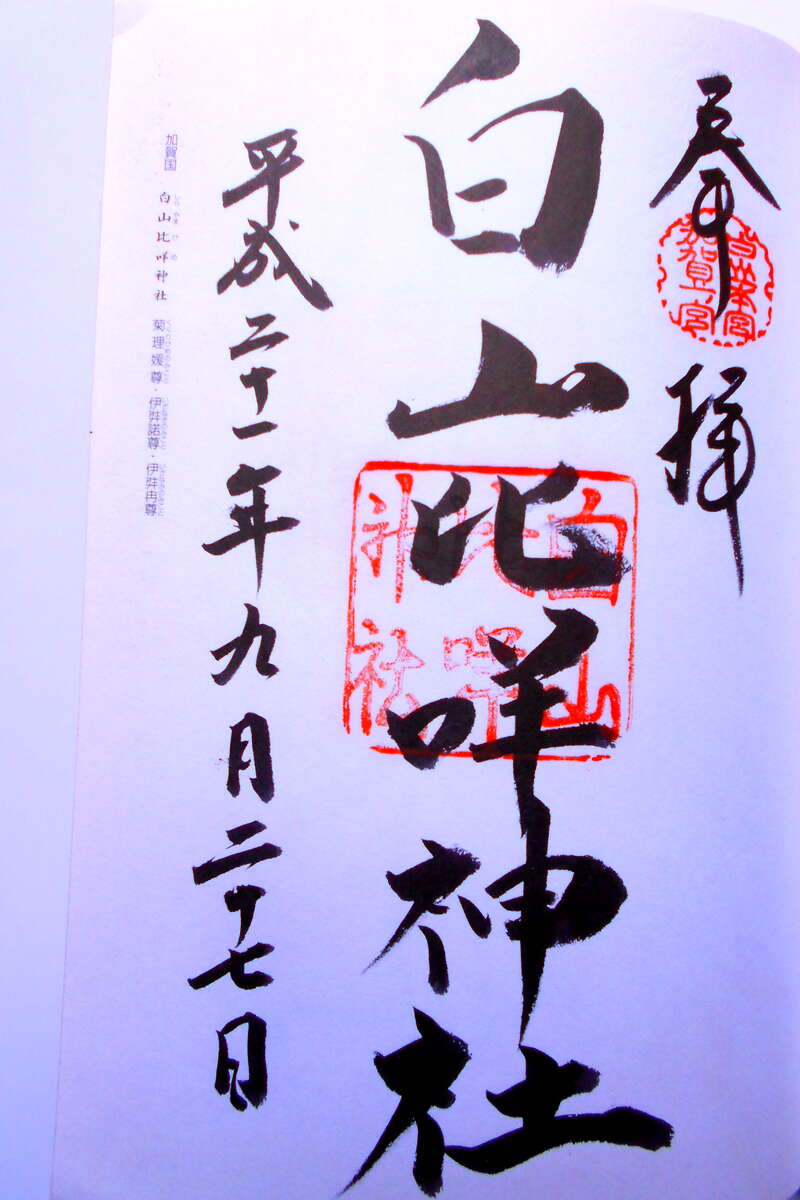 奉拝
加賀一宮
白山比咩神社
白山比咩神社
平成二十一年九月二十七日
加賀国 白山比咩神社 菊理媛尊・伊弉諾尊・伊弉冉尊